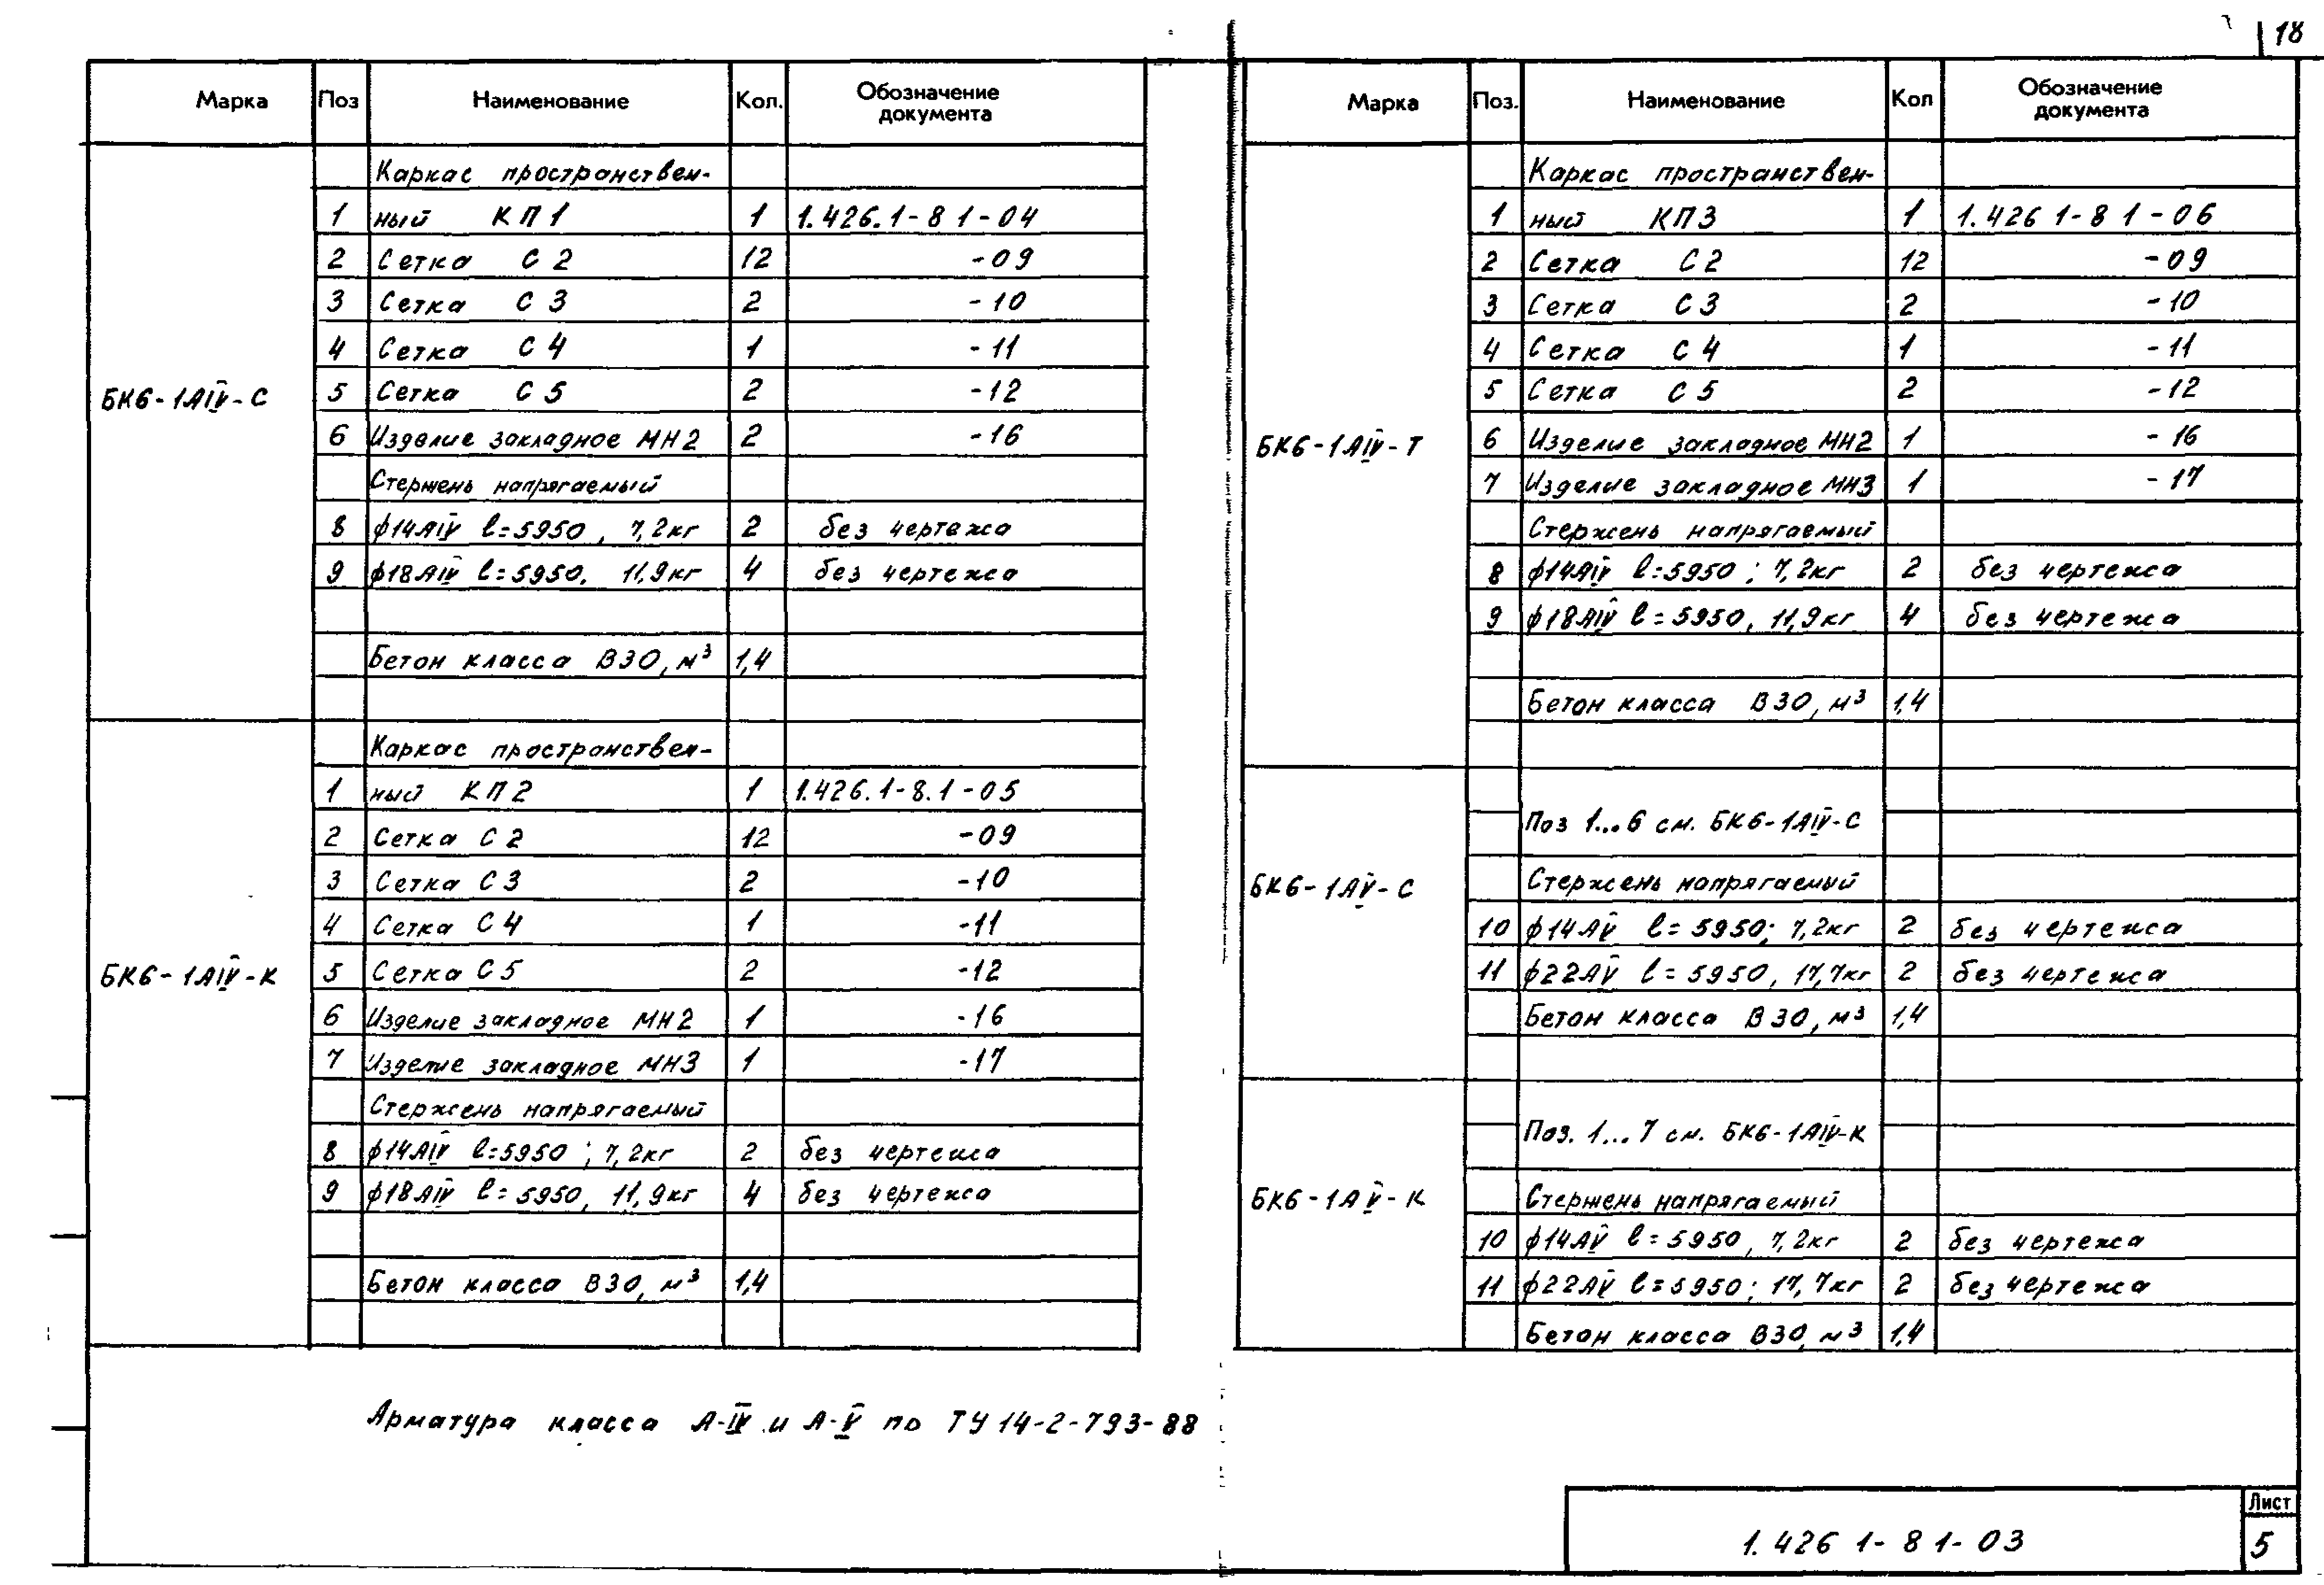 18
Марка Поз Наименование Кол. Обозначение документа
БК6-1АIV-С
Каркас пространствен-
1 ный КП1 1 1.426.1-8 1-04
2 Сетка С2 12 -09
3 Сетка С3 2 -10
4 Сетка С4 1 -11
5 Сетка С5 2 -12
6 Изделие закладное МН2 2 -16
Стержень напрягаемый
8 ф14АIV l=5950, 7,2кг 2 без чертежа
9 ф18АIV l=5950, 11,9кг 4 без чертежа
Бетон класса В30, м³ 1,4
БК6-1АIV-К
Каркас пространствен-
1 ный КП2 1 1.426.1-8.1-05
2 Сетка С2 12 -09
3 Сетка С3 2 -10
4 Сетка С4 1 -11
5 Сетка С5 2 -12
6 Изделие закладное МН2 1 -16
7 Изделие закладное МН3 1 -17
Стержень напрягаемый
8 ф14АIV l=5950; 7,2кг 2 без чертежа
9 ф18АIV l=5950, 11,9кг 4 без чертежа
Бетон класса В30, м³ 1,4
Марка Поз. Наименование Кол Обозначение документа
БК6-1АIV-Т
Каркас пространствен-
1 ный КП3 1 1.426 1-8 1-06
2 Сетка С2 12 -09
3 Сетка С3 2 -10
4 Сетка С4 1 -11
5 Сетка С5 2 -12
6 Изделие закладное МН2 1 -16
7 Изделие закладное МН3 1 -17
Стержень напрягаемый
8 ф14АIV l=5950; 7,2кг 2 без чертежа
9 ф18АIV l=5950, 11,9кг 4 без чертежа
Бетон класса В30, м³ 1,4
БК6-1АV-С
Поз 1...6 см. БК6-1АIV-С
Стержень напрягаемый
10 ф14АV l=5950; 7,2кг 2 без чертежа
11 ф22АV l=5950, 17,7кг 2 без чертежа
Бетон класса В30, м³ 1,4
БК6-1АV-К
Поз. 1...7 см. БК6-1АIV-К
Стержень напрягаемый
10 ф14АV l=5950, 7,2кг 2 без чертежа
11 ф22АV l=5950; 17,7кг 2 без чертежа
Бетон класса В30, м³ 1,4
Арматура класса А-IV и А-V по ТУ 14-2-793-88
1.426 1-8 1-03
Лист
5